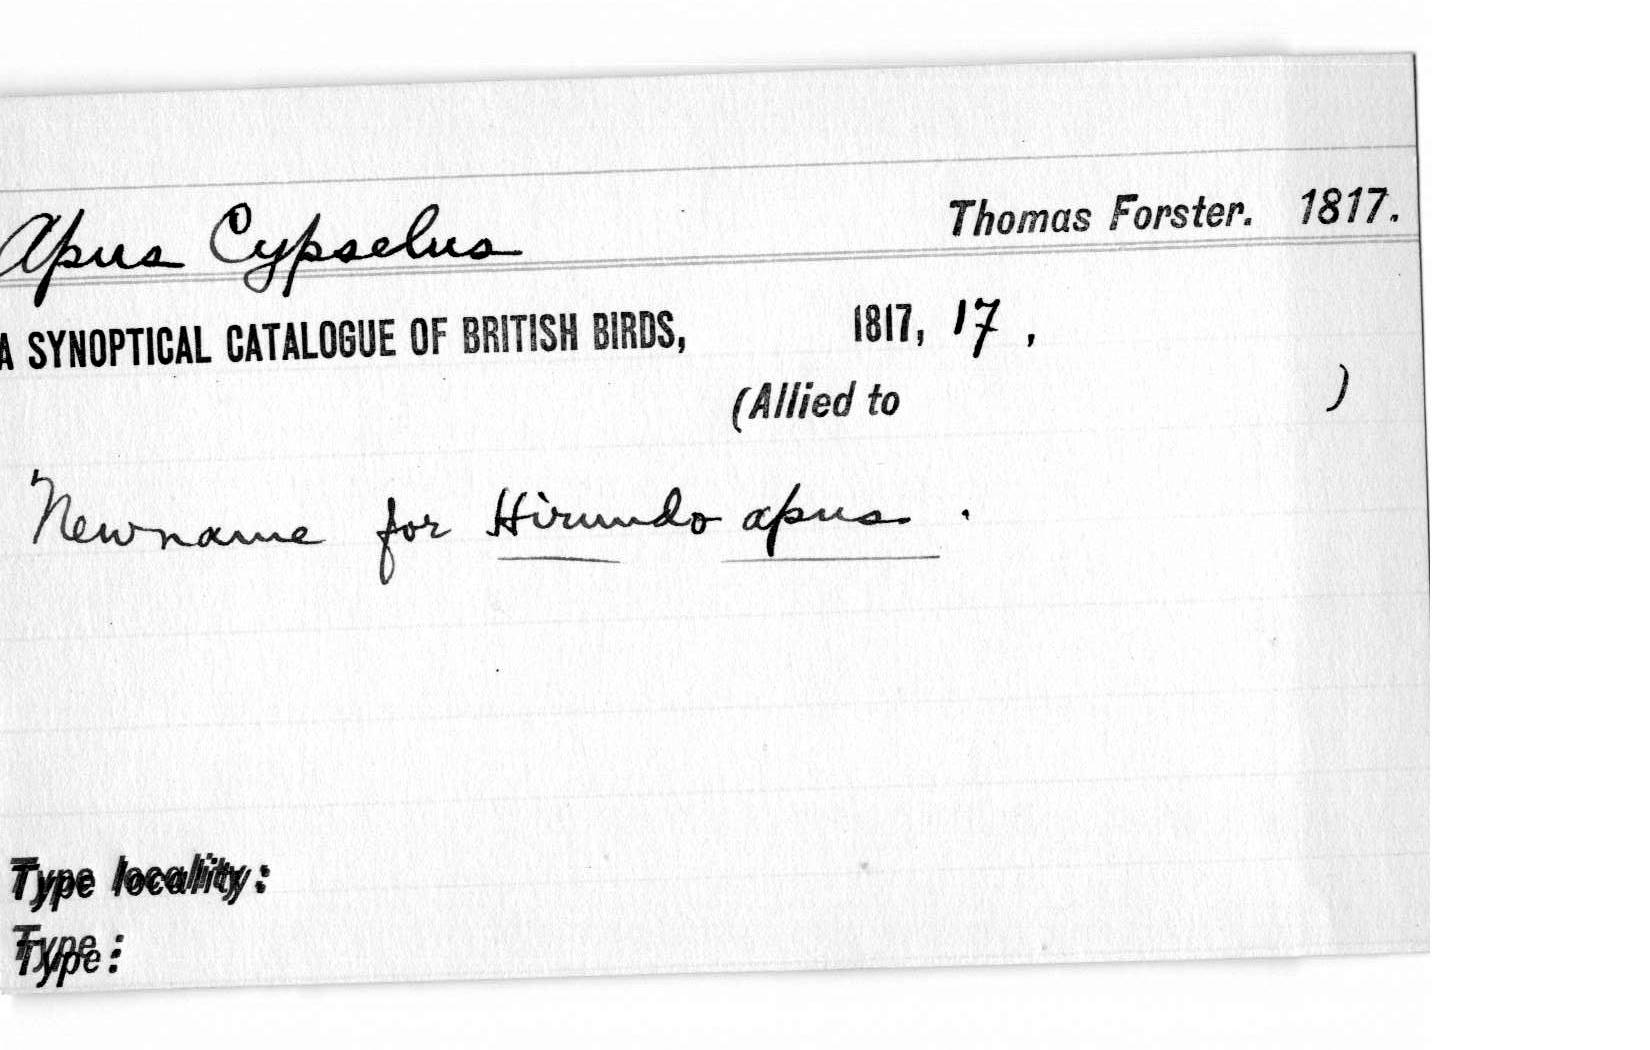 Apus Cypselus Thomas Forster. 1817.
A SYNOPTICAL CATALOGUE OF BRITISH BIRDS, 1817, 17,
(Allied to )
New name for Hirundo apus.
Type locality:
Type: